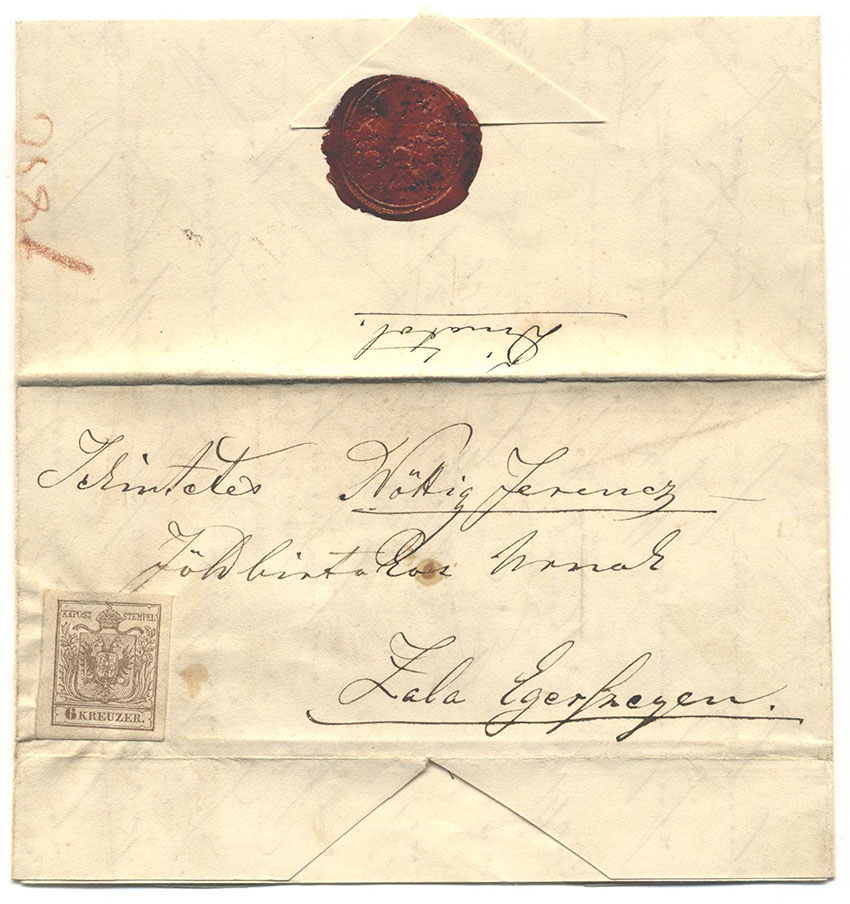 Tekintetes Nöttig Ferencz
Földbirtokos Urnak
Zala Egerszegen.
K.K.POST-STEMPEL
6 KREUZER.